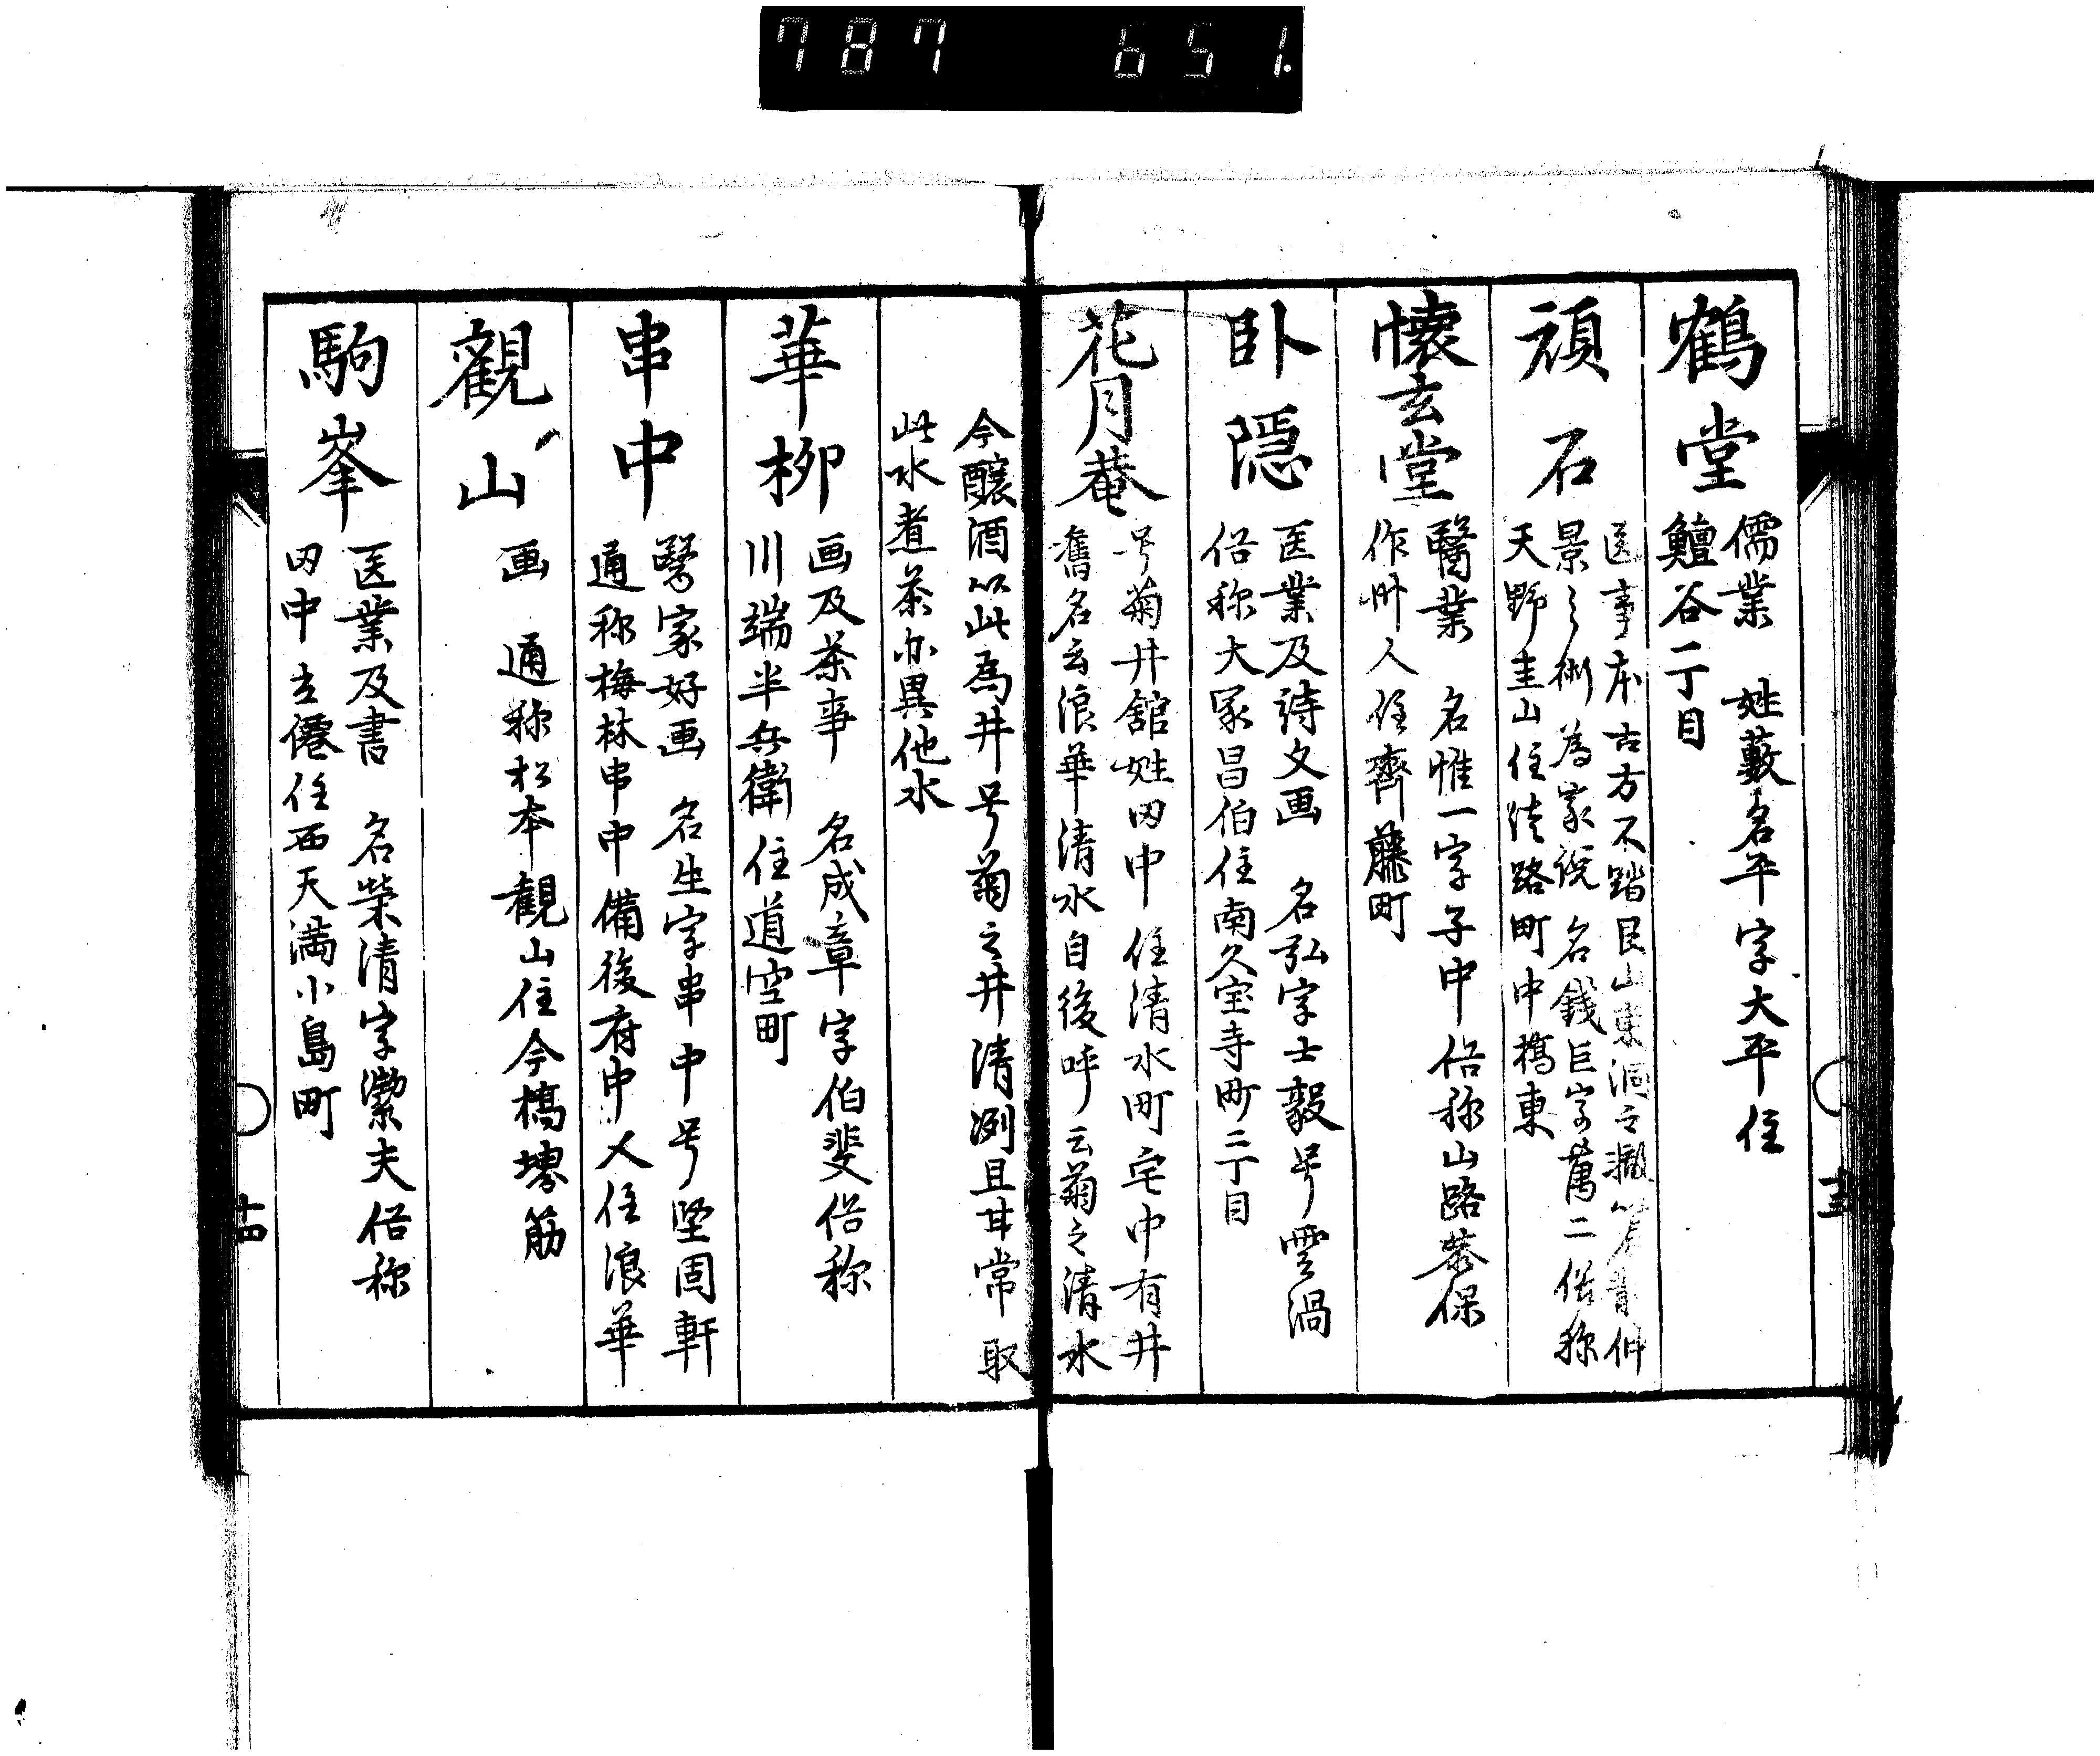 787 651.
鶴堂
儒業 姓藪名平字大平住
鱣谷二丁目
頑石
医事本古方不踏艮山東洞之撤 仲
景之術為家説 名錢巨字萬二俗称
天野圭山住淡路町中橋東
懐玄堂
醫業 名惟一字子中俗称山路恭保
作州人住齊藤町
卧隠
医業及詩文画 名弘字士毅号雲渦
俗称大冢昌伯住南久宝寺町二丁目
花月菴
号菊井舘姓田中住清水町宅中有井
舊名云浪華清水自後呼云菊之清水
今醸酒以此為井号菊之井清洌且甘常取
此水煮茶亦異他水
華柳
画及茶事 名成章字伯斐俗称
川端半兵衛住道空町
串中
醫家好画 名生字串中号堅固軒
通称梅林串中備後府中人住浪華
觀山
画 通称松本観山住今橋堺筋
駒峯
医業及書 名榮清字瀠夫俗称
田中玄僊住西天満小島町
十四